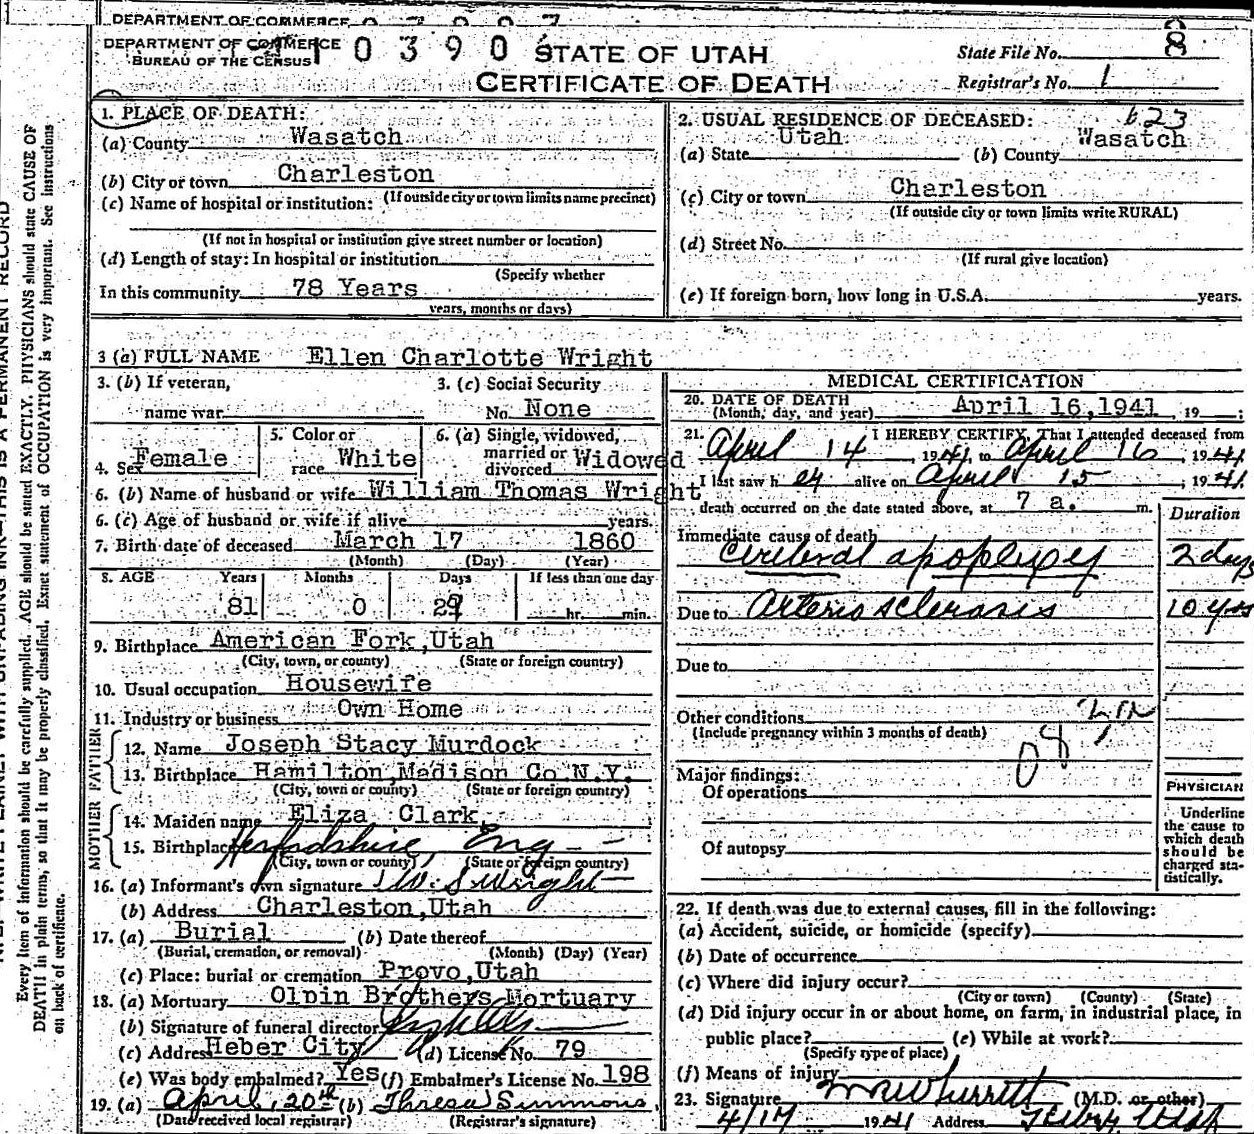 DEPARTMENT OF COMMERCE
DEPARTMENT OF COMMERCE
BUREAU OF THE CENSUS
0390 STATE OF UTAH
CERTIFICATE OF DEATH
State File No. 8
Registrar's No. 1
Every item of information should be carefully supplied. AGE should be stated EXACTLY. PHYSICIANS should state CAUSE OF
DEATH in plain terms, so that it may be properly classified. Exact statement of OCCUPATION is very important. See instructions
on back of certificate.
1. PLACE OF DEATH:
(a) County Wasatch
(b) City or town Charleston
(If outside city or town limits name precinct)
(c) Name of hospital or institution:
(If not in hospital or institution give street number or location)
(d) Length of stay: In hospital or institution
(Specify whether
In this community 78 Years
years, months or days)
2. USUAL RESIDENCE OF DECEASED: 623
(a) State Utah (b) County Wasatch
(c) City or town Charleston
(If outside city or town limits write RURAL)
(d) Street No.
(If rural give location)
(e) If foreign born, how long in U.S.A. years.
3 (a) FULL NAME Ellen Charlotte Wright
3. (b) If veteran,
name war
3. (c) Social Security
No. None
4. Sex Female
5. Color or
race White
6. (a) Single, widowed,
married or
divorced Widowed
6. (b) Name of husband or wife William Thomas Wright
6. (c) Age of husband or wife if alive years.
7. Birth date of deceased March 17 1860
(Month) (Day) (Year)
8. AGE Years Months Days If less than one day
81 0 29 hr. min.
9. Birthplace American Fork, Utah
(City, town, or county) (State or foreign country)
10. Usual occupation Housewife
11. Industry or business Own Home
FATHER
12. Name Joseph Stacy Murdock
13. Birthplace Hamilton, Madison Co. N.Y.
(City, town or county) (State or foreign country)
MOTHER
14. Maiden name Eliza Clark
15. Birthplace Herfordshire, Eng
(City, town or county) (State or foreign country)
16. (a) Informant's own signature W. S. Wright
(b) Address Charleston, Utah
17. (a) Burial (b) Date thereof
(Burial, cremation, or removal) (Month) (Day) (Year)
(c) Place: burial or cremation Provo, Utah
18. (a) Mortuary Olpin Brothers Mortuary
(b) Signature of funeral director
(c) Address Heber City (d) License No. 79
(e) Was body embalmed? Yes (f) Embalmer's License No. 198
19. (a) April, 20th (b) Thresa Simmons
(Date received local registrar) (Registrar's signature)
MEDICAL CERTIFICATION
20. DATE OF DEATH
(Month, day, and year) April 16, 1941, 19 ;
21. I HEREBY CERTIFY, That I attended deceased from
April 14 1941 to April 16, 1941
I last saw her alive on April 15; 1941
death occurred on the date stated above, at 7 a. m.
Duration
Immediate cause of death
Cerebral apoplexy 2 days
Due to Arterio sclerosis 10 yrs
Due to
Other conditions
(Include pregnancy within 3 months of death)
Major findings:
Of operations
Of autopsy
PHYSICIAN
Underline
the cause to
which death
should be
charged sta-
tistically.
22. If death was due to external causes, fill in the following:
(a) Accident, suicide, or homicide (specify)
(b) Date of occurrence
(c) Where did injury occur?
(City or town) (County) (State)
(d) Did injury occur in or about home, on farm, in industrial place, in
public place? (e) While at work?
(Specify type of place)
(f) Means of injury
23. Signature (M.D. or other)
4/17 1941 Address Heber, Utah